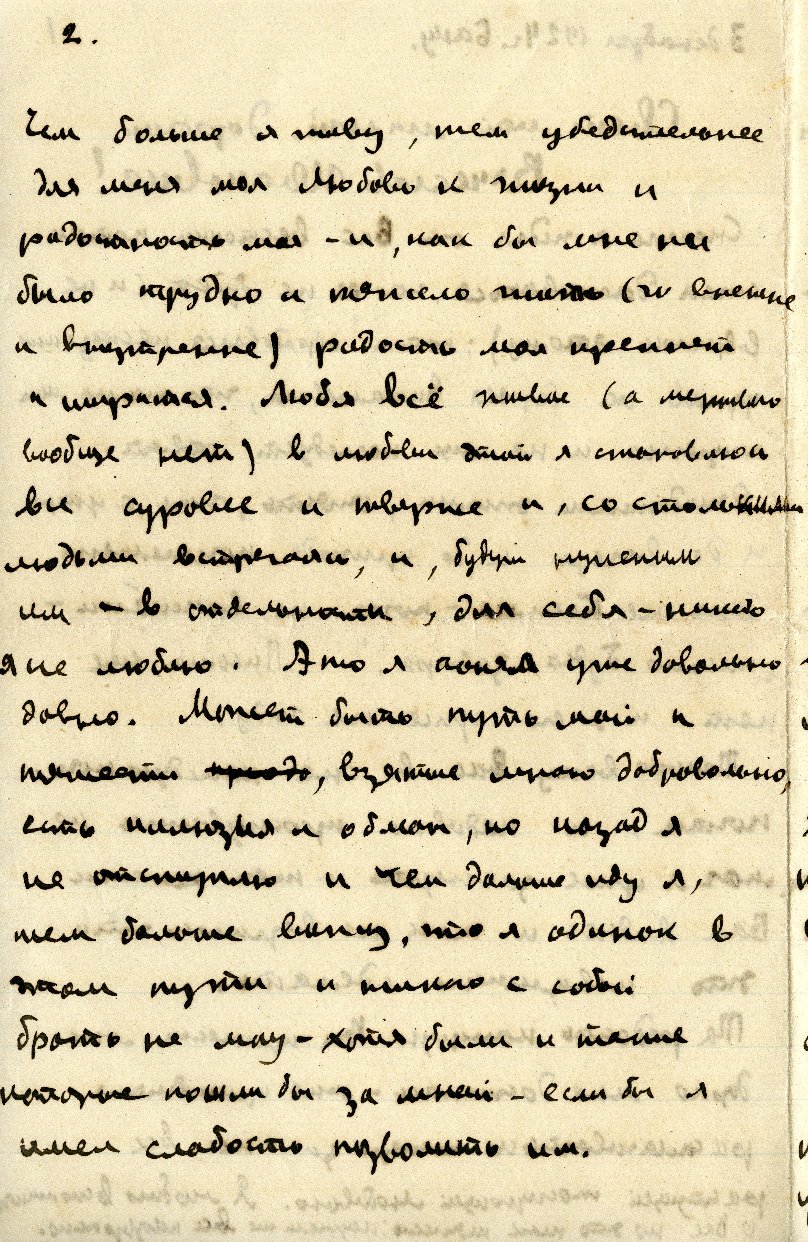 2.
Чем больше я живу, тем убедительнее
для меня моя любовь к жизни и
радостность моя – и, как бы мне ни
было трудно и тяжело жить (и внешне
и внутренне) радость моя крепнет
и ширится. Любя всё живое (а мертвого
вообще нет) в любви этой я становлюсь
все суровее и тверже и, со столькими
людьми встречаясь, и, будучи нужным
им – в отдельности, для себя – никого
я не люблю. Это я понял уже довольно
давно. Может быть путь мой и
тяжести, взятые мною добровольно,
есть иллюзия и обман, но назад я
не отступлю и чем дальше иду я,
тем больше вижу, что я одинок в
этом пути и никого с собой
брать не могу – хотя были и такие
которые пошли бы за мной – если бы я
имел слабость позволить им.